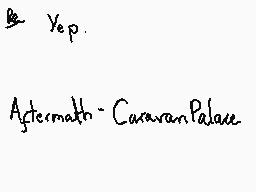 Re Yep.
Aftermath - Caravan Palace